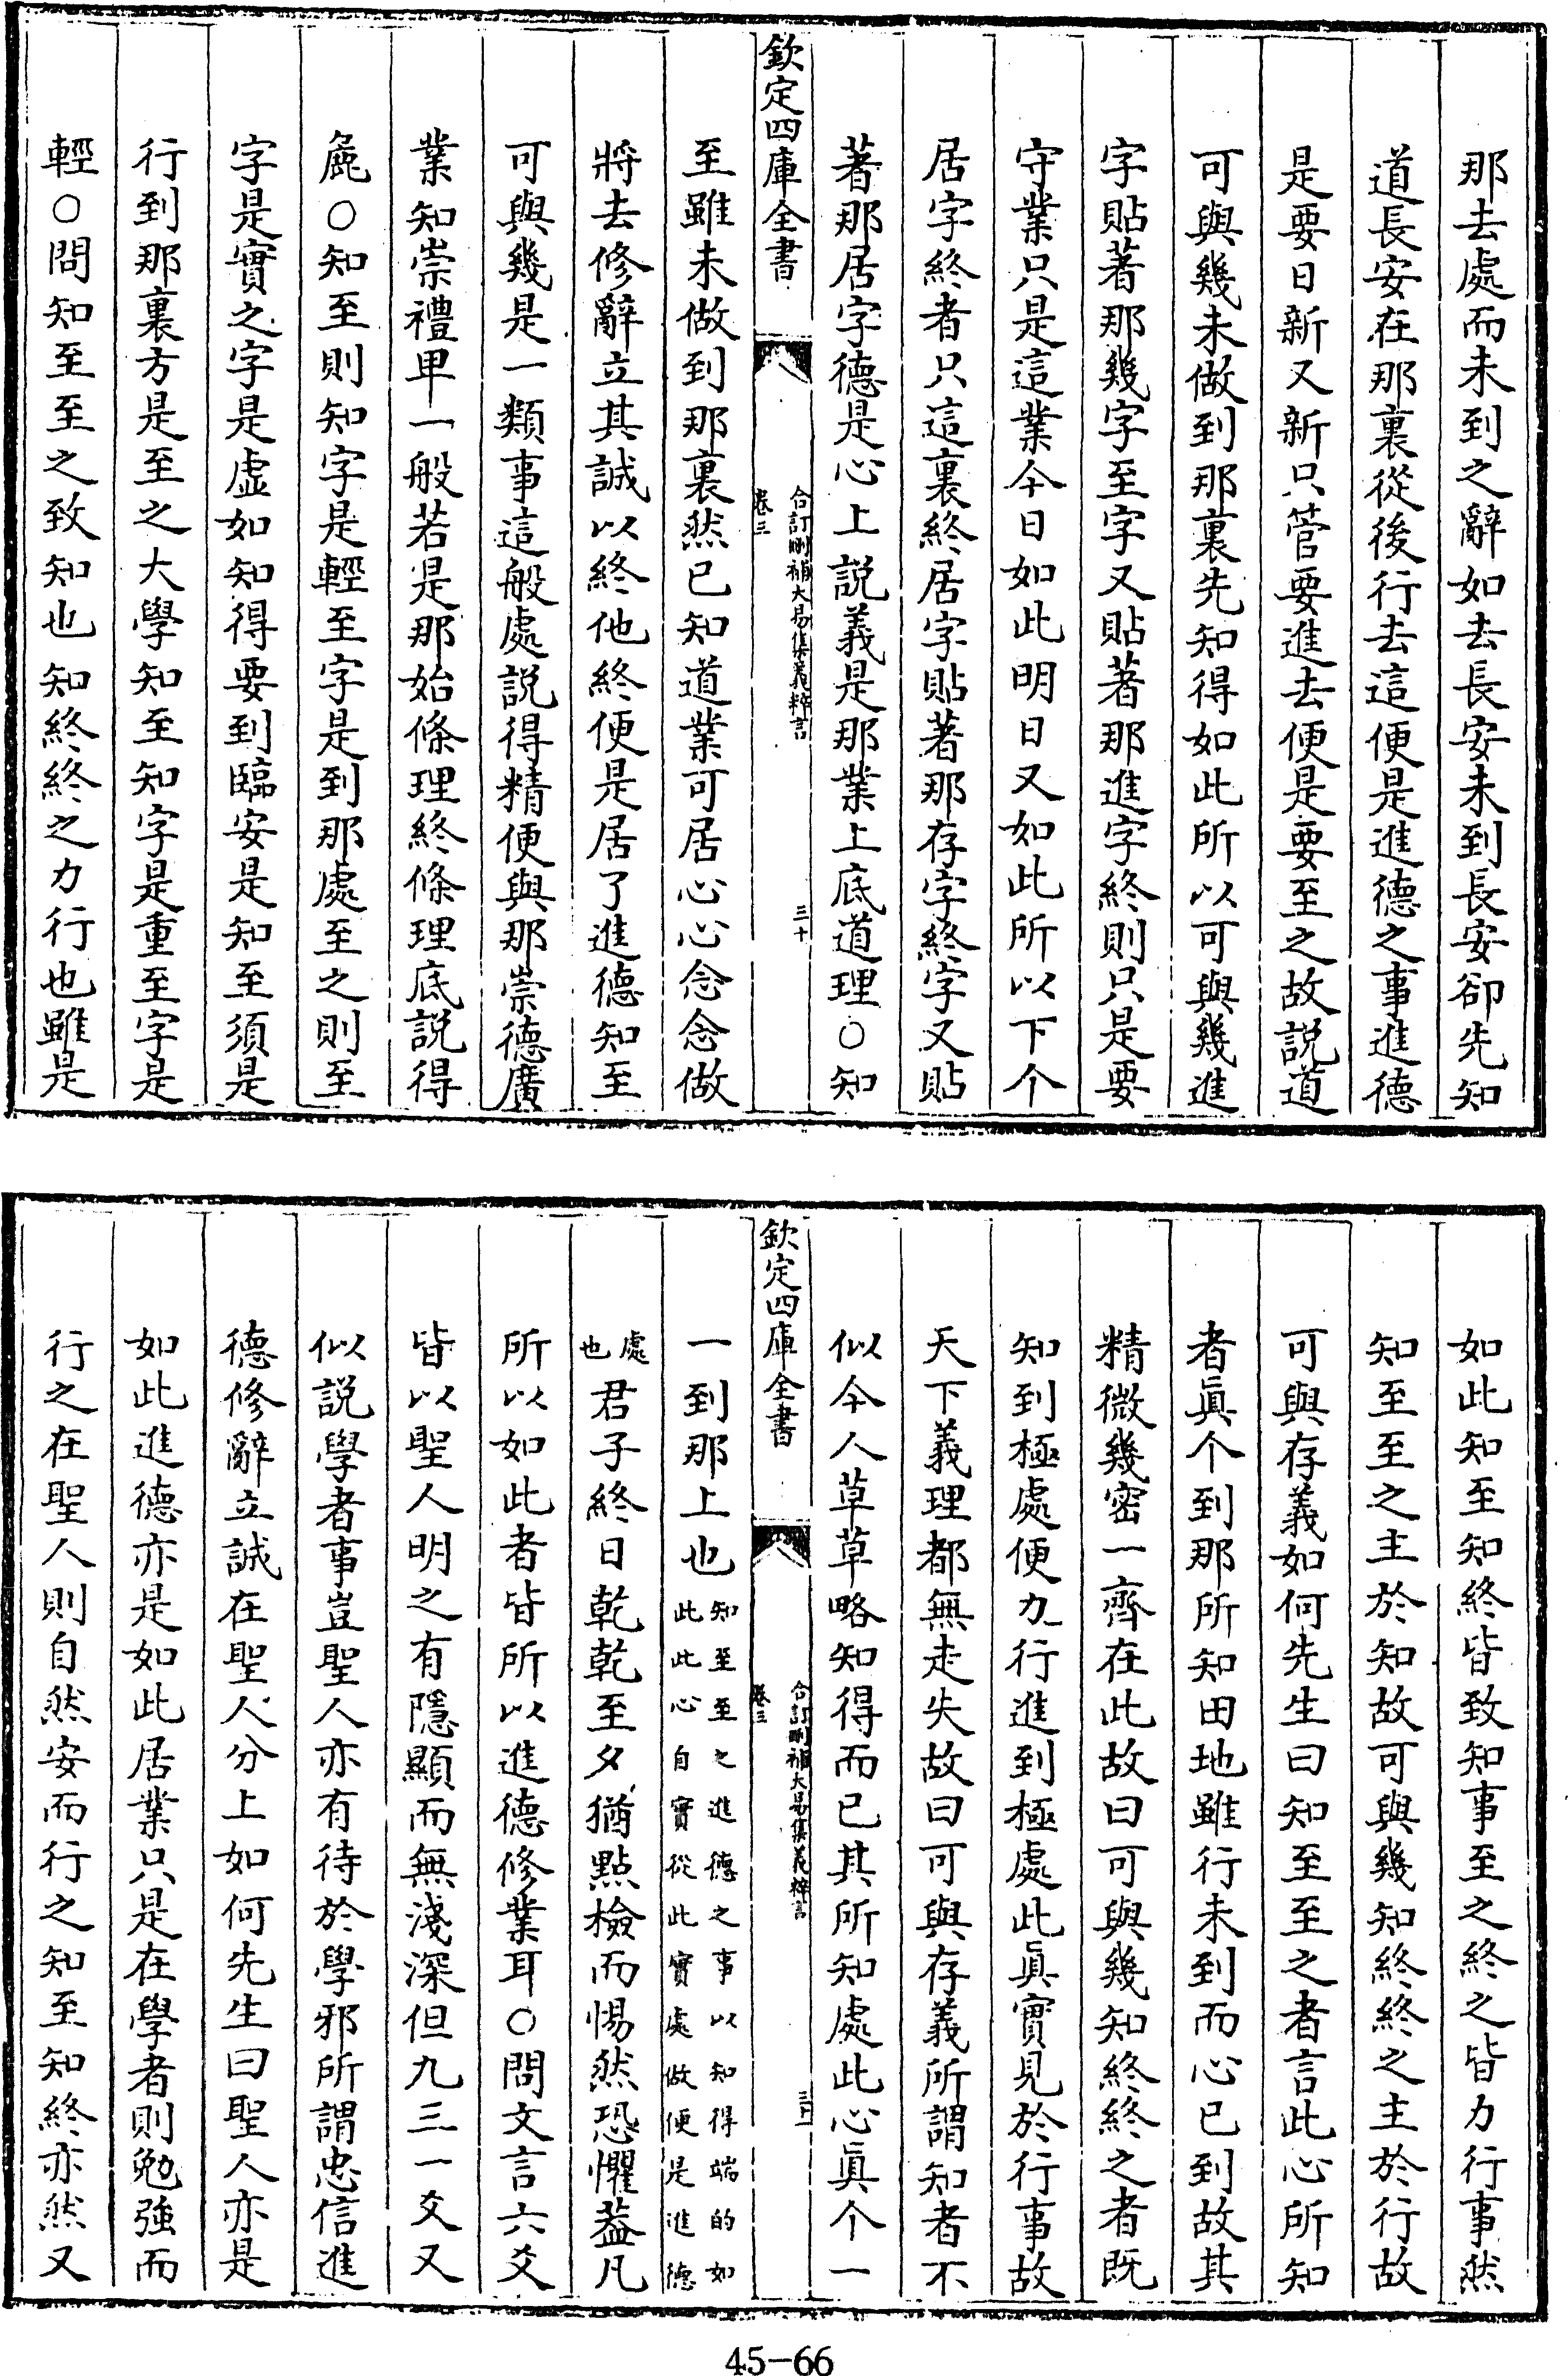 那去處而未到之辭如去長安未到長安卻先知
道長安在那裏從後行去這便是進德之事進德
是要日新又新只管要進去便是要至之故説道
可與幾未做到那裏先知得如此所以可與幾進
字貼著那幾字至字又貼著那進字終則只是要
守業只是這業今日如此明日又如此所以下个
居字終者只這裏終居字貼著那存字終字又貼
著那居字德是心上説義是那業上底道理○知
欽定四庫全書
合訂刪補大易集義粹言
卷三
三十
至雖未做到那裏然已知道業可居心心念念做
將去修辭立其誠以終他終便是居了進德知至
可與幾是一類事這般處説得精便與那崇德廣
業知崇禮卑一般若是那始條理終條理底説得
麄○知至則知字是輕至字是到那處至之則至
字是實之字是虛如知得要到臨安是知至須是
行到那裏方是至之大學知至知字是重至字是
輕○問知至至之致知也知終終之力行也雖是
如此知至知終皆致知事至之終之皆力行事然
知至至之主於知故可與幾知終終之主於行故
可與存義如何先生曰知至至之者言此心所知
者眞个到那所知田地雖行未到而心已到故其
精微幾密一齊在此故曰可與幾知終終之者既
知到極處便力行進到極處此眞實見於行事故
天下義理都無走失故曰可與存義所謂知者不
似今人草草略知得而已其所知處此心眞个一
欽定四庫全書
合訂刪補大易集義粹言
卷三
三十一
一到那上也知至至之進德之事以知得端的如此此心自實從此實處做便是進德
處也君子終日乾乾至夕猶點檢而惕然恐懼葢凡
所以如此者皆所以進德修業耳○問文言六爻
皆以聖人明之有隱顯而無淺深但九三一爻又
似説學者事豈聖人亦有待於學邪所謂忠信進
德修辭立誠在聖人分上如何先生曰聖人亦是
如此進德亦是如此居業只是在學者則勉強而
行之在聖人則自然安而行之知至知終亦然又
45-66